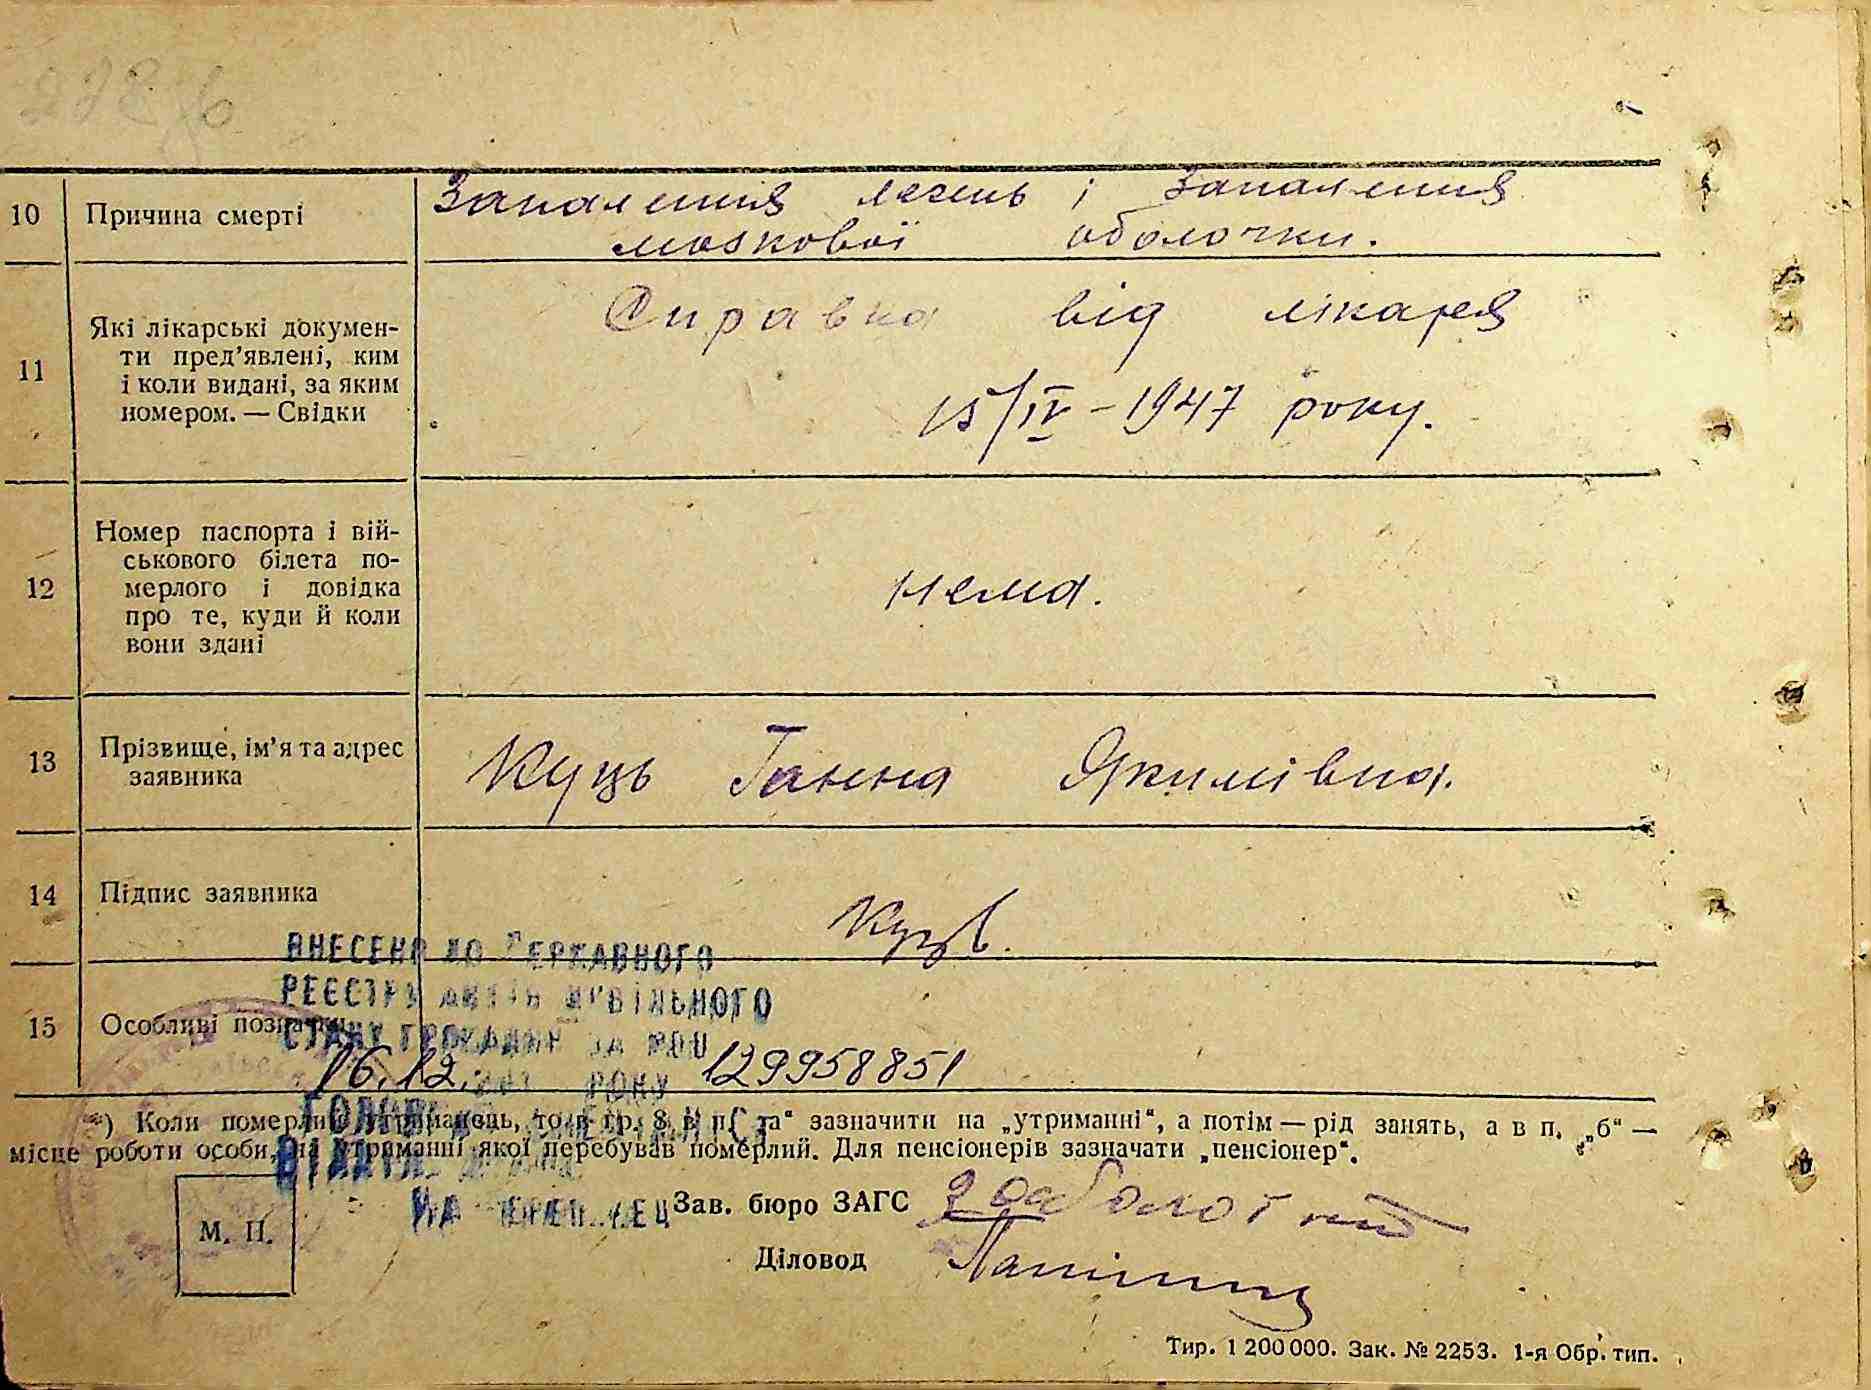 10 Причина смерті Запалення легень і запалення
мозкової оболочки.
11 Які лікарські докумен-
ти пред’явлені, ким
і коли видані, за яким
номером. — Свідки
Справка від лікаря
15/IV – 1947 року.
12 Номер паспорта і вій-
ськового білета по-
мерлого і довідка
про те, куди й коли
вони здані
нема.
13 Прізвище, ім’я та адрес
заявника
Куць Ганна Якимівна.
14 Підпис заявника Куць.
ВНЕСЕНО ДО ДЕРЖАВНОГО
РЕЄСТРУ АКТІВ ЦИВІЛЬНОГО
15 Особливі позначки
СТАНУ ГРОМАДЯН ЗА №
16.12. РОКУ 129958851
*) Коли померлий утриманець, то в гр. 8 в п. „а“ зазначити на „утриманні“, а потім — рід занять, а в п. „б“ —
місце роботи особи, на утриманні якої перебував померлий. Для пенсіонерів зазначати „пенсіонер“.
М. П.
Зав. бюро ЗАГС
Діловод
Тир. 1 200 000. Зак. № 2253. 1-я Обр. тип.